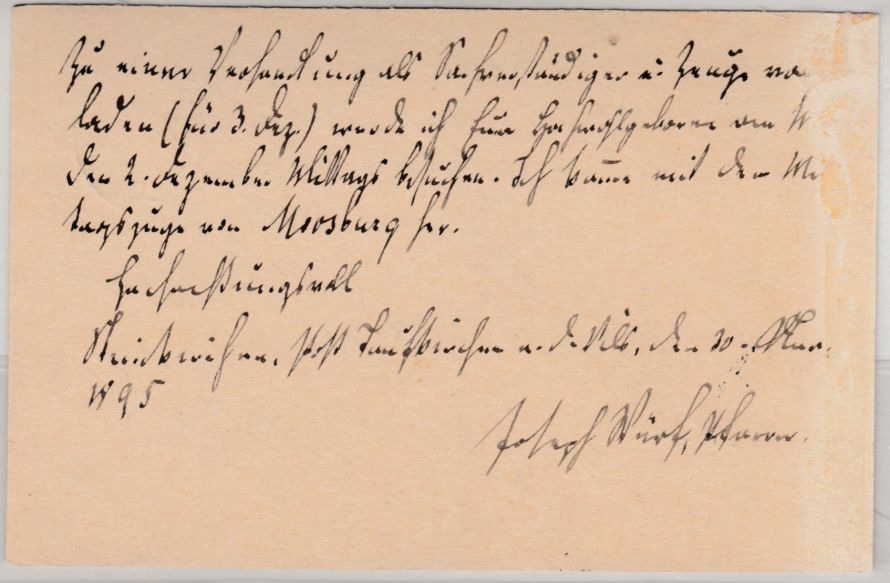 Zu einer Verhandlung als Sachverständiger u. Zeuge vor
laden (für 3. Dez.) werde ich Euer Hochwohlgeboren am
den 2. Dezember Mittags besuchen. Ich komme mit dem
tagszuge von Moosburg her.
Hochachtungsvoll
Steinkirchen, Post Taufkirchen a. d. Vils, den 30. Nov.
1895
Joseph Würf, Pfarrer.